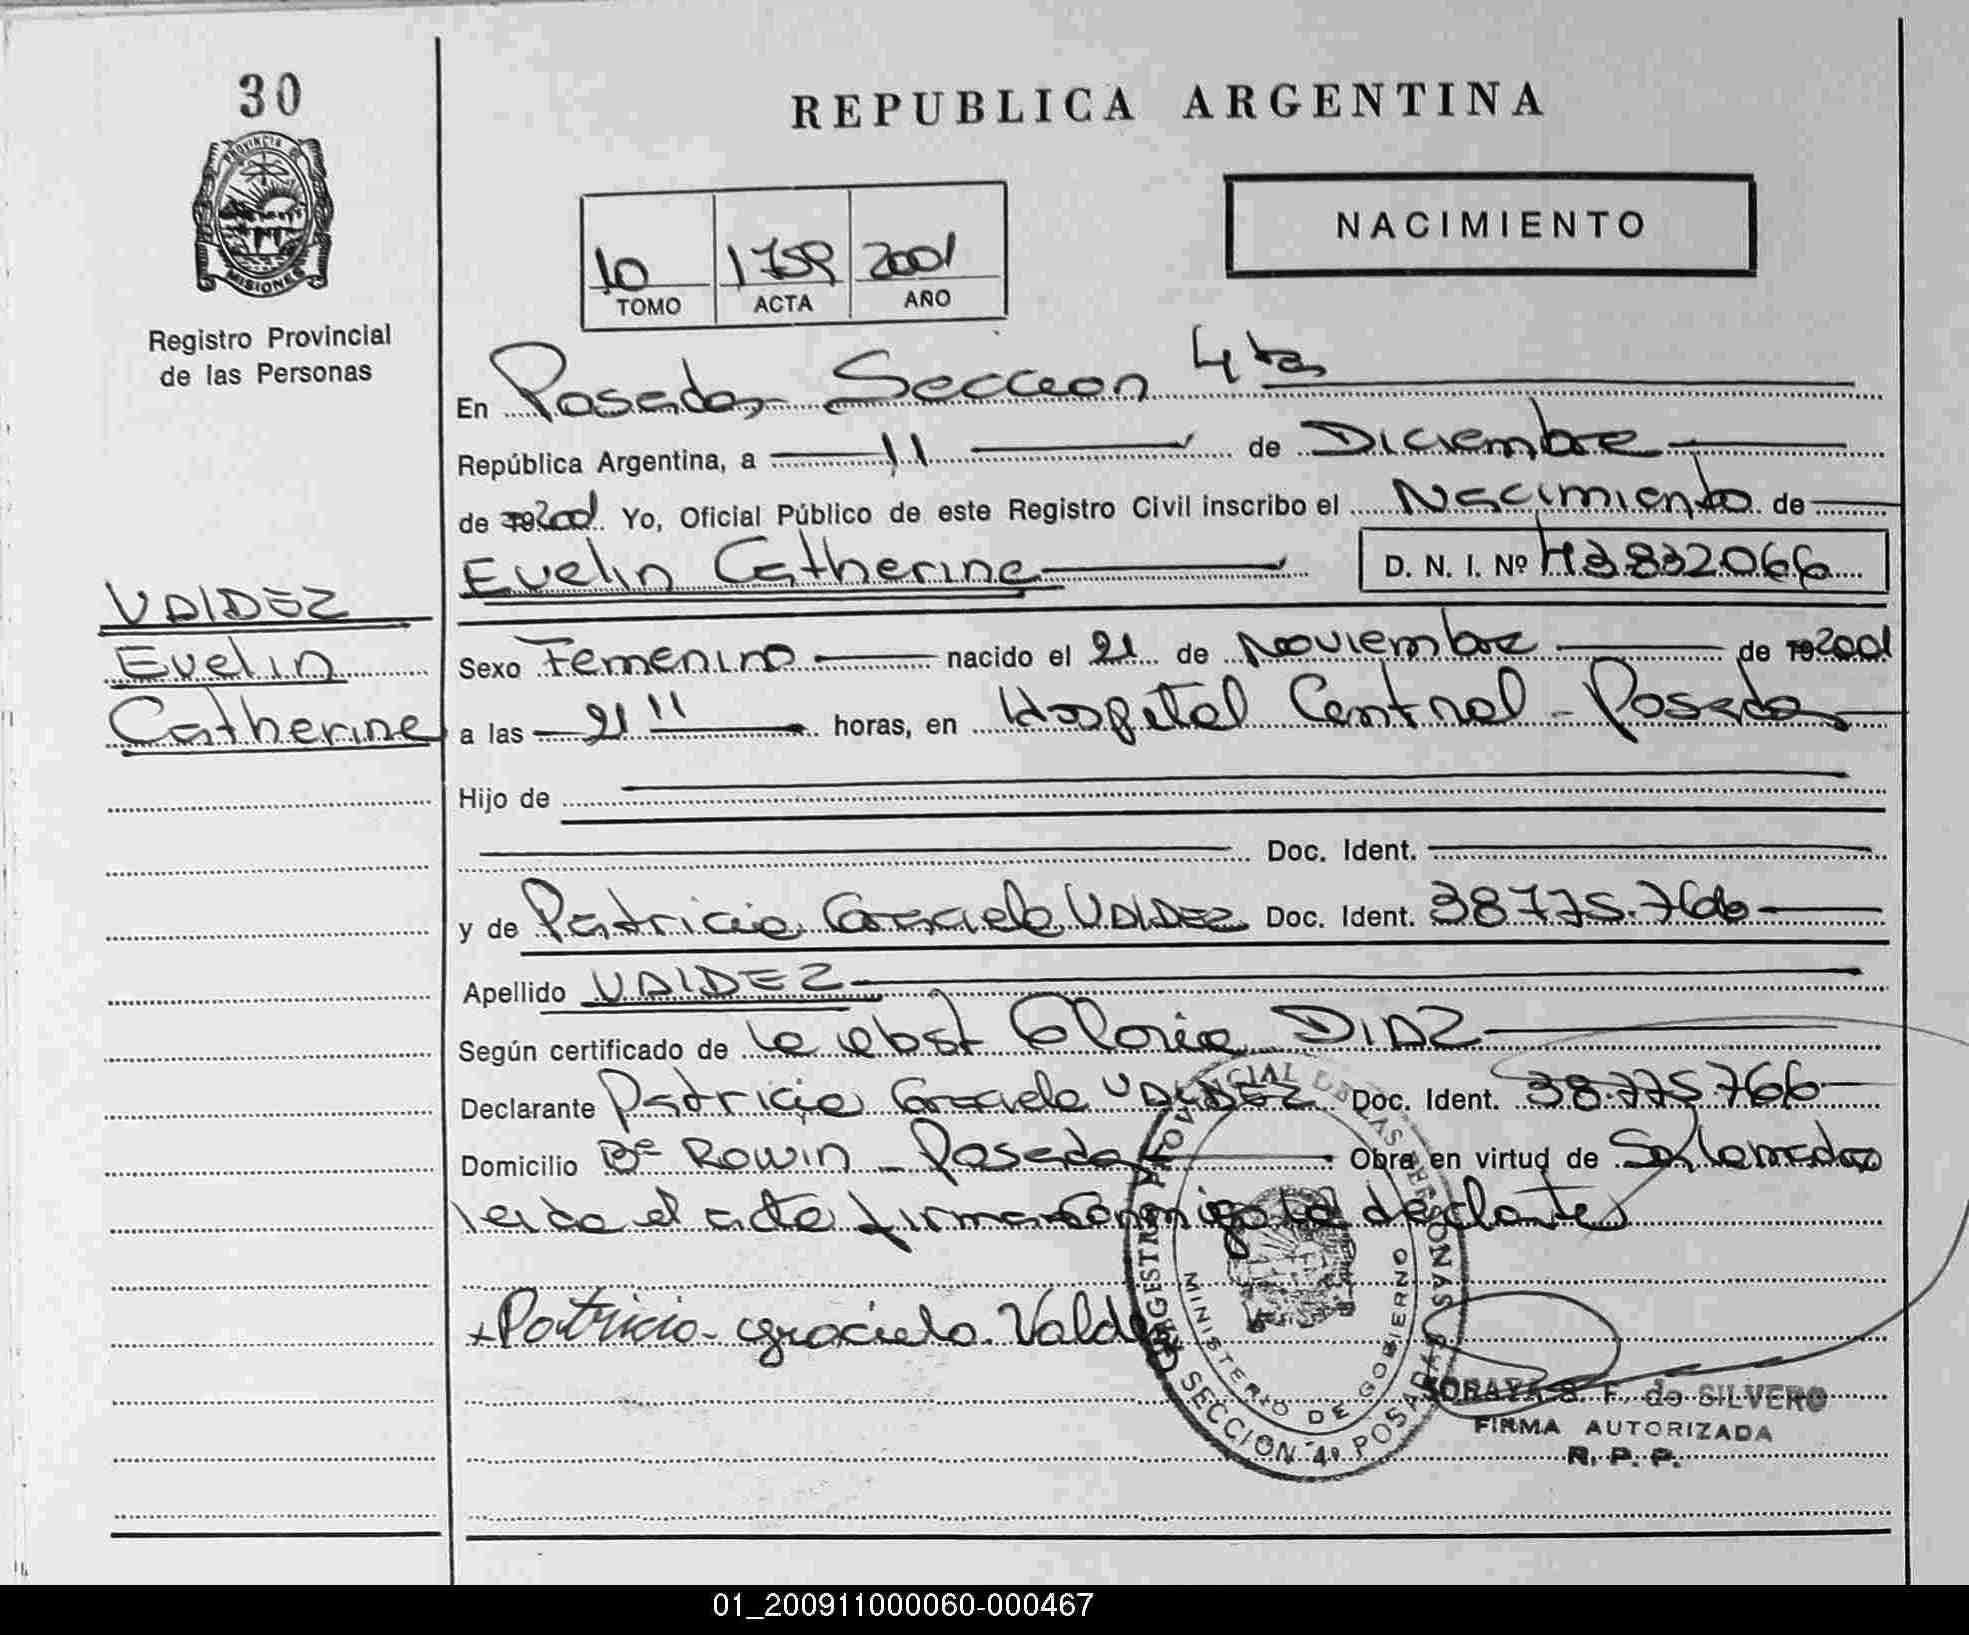 30
PROVINCIA DE
MISIONES
Registro Provincial
de las Personas
REPUBLICA ARGENTINA
NACIMIENTO
10 1759 2001
TOMO ACTA AÑO
En Posadas Seccion 4ta
República Argentina, a 11 de Diciembre
de 2001 Yo, Oficial Público de este Registro Civil inscribo el Nacimiento de
Evelin Catherine D. N. I. Nº 43832066
VALDEZ
Evelin
Catherine
Sexo Femenino nacido el 21 de Noviembre de 192001
a las 21 11 horas, en Hospital Central - Posadas
Hijo de
Doc. Ident.
y de Patricia Graciela VALDEZ Doc. Ident. 38.775.766
Apellido VALDEZ
Según certificado de la obst Gloria DIAZ
Declarante Patricia Graciela VALDEZ Doc. Ident. 38.775.766
Domicilio Bº ROWIN - Posadas Obra en virtud de
leida el acta firma conmigo la declante
Patricia graciela Valdez
REGISTRO PROVINCIAL DE LAS PERSONAS
MINISTERIO DE GOBIERNO
SECCION 4ª POSADAS
SORAYA S. F. de SILVERO
FIRMA AUTORIZADA
R. P. P.
01_200911000060-000467